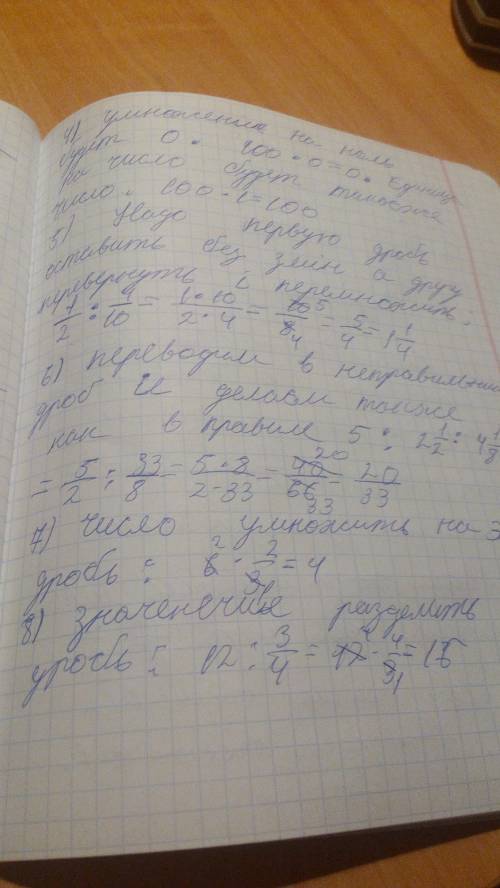 4) умножение на ноль
будет 0. 100 • 0 = 0. Единиц
на число будет такое же
число. 100 • 1 = 100
5) Надо первую дробь
оставить без змин а друу
перевернуть і перемножить:
1/2 : 1/10 = 1•10/2•4 = 10 5/8 4 = 5/4 = 1 1/4
6) переводим в неправильн
дроб И делаем также
как в правил 5: 2 1/2 : 4 1/8
= 5/2 : 33/8 = 5•8/2-33 = 40 20/66 33 = 20/33
7) число умножить на э
дробь: 6 2 • 2/3 1 = 4
8) значение разделить
дробь: 12 : 3/4 = 12 4 • 4/3 1 = 16